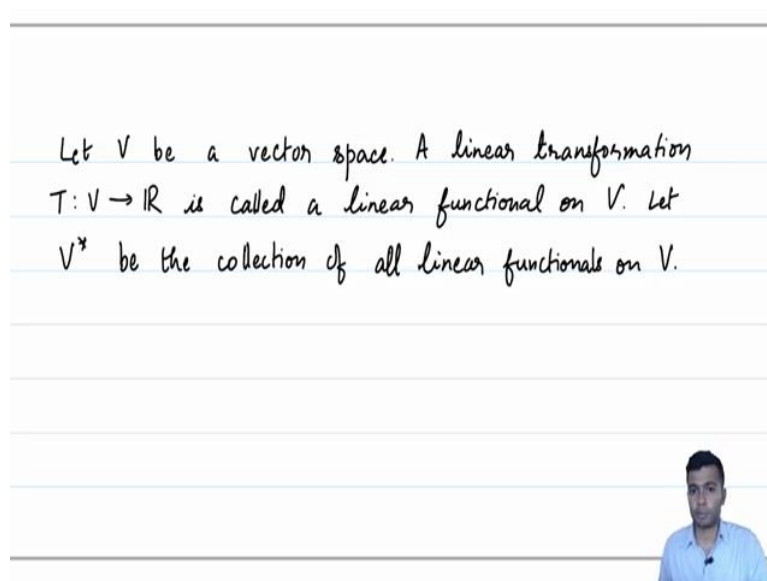 Let V be a vector space. A linear transformation
T: V → ℝ is called a linear functional on V. Let
V* be the collection of all linear functionals on V.